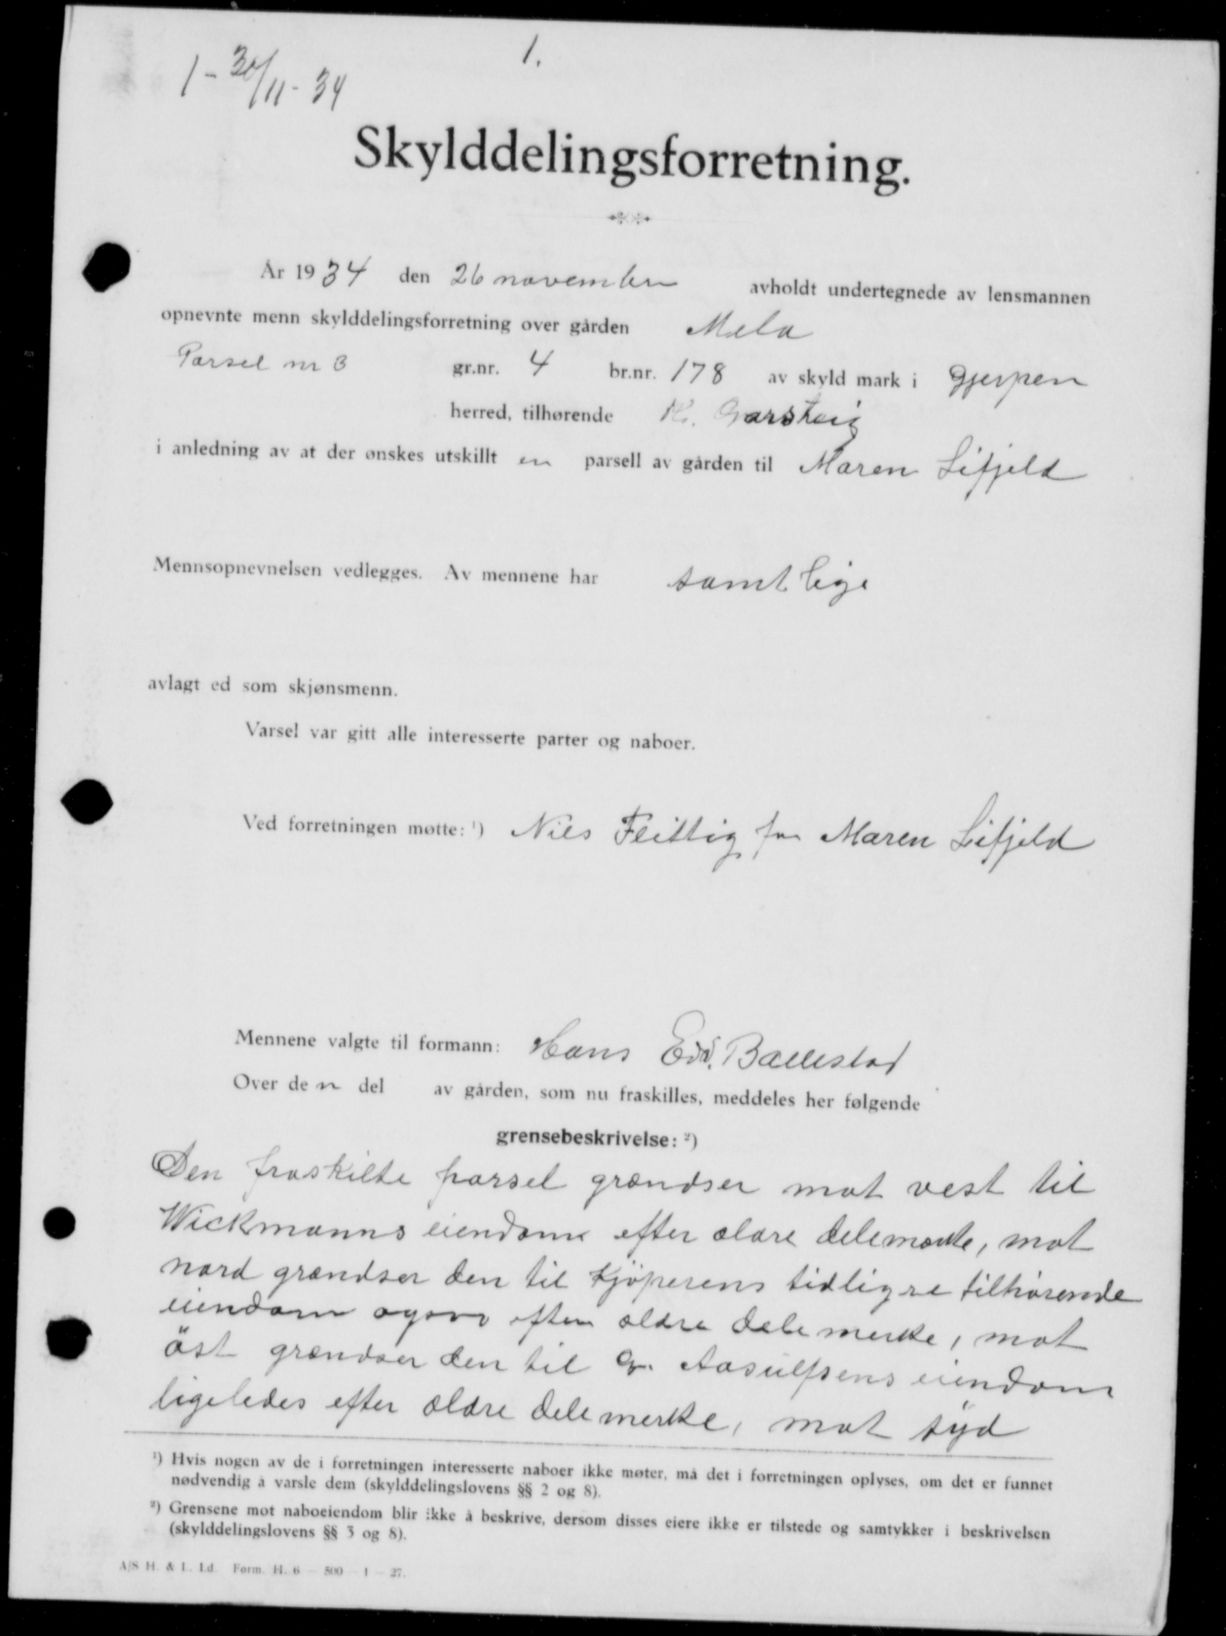 1.
1 - 30/11 - 34
Skylddelingsforretning.
År 1934 den 26 november avholdt undertegnede av lensmannen
opnevnte menn skylddelingsforretning over gården Mela
Parsel nr 3 gr.nr. 4 br.nr. 178 av skyld mark i Gjerpen
herred, tilhørende
i anledning av at der ønskes utskillt en parsell av gården til Maren Lifjeld
Mennsopnevnelsen vedlegges. Av mennene har samtlige
avlagt ed som skjønsmenn.
Varsel var gitt alle interesserte parter og naboer.
Ved forretningen møtte: ¹) Nils Flittig for Maren Lifjeld
Mennene valgte til formann: Hans Edv. Ballestad
Over den del av gården, som nu fraskilles, meddeles her følgende
grensebeskrivelse: ²)
Den fraskilte parsel grændser mot vest til
Wickmanns eiendom efter ældre delemærke, mot
nord grændser den til kjöperens tidligre tilhörende
eiendom ogsaa efter ældre delemerke, mot
öst grændser den til Aasulfsens eiendom
ligeledes efter ældre delemerke, mot syd
¹) Hvis nogen av de i forretningen interesserte naboer ikke møter, må det i forretningen oplyses, om det er funnet
nødvendig å varsle dem (skylddelingslovens §§ 2 og 8).
²) Grensene mot naboeiendom blir ikke å beskrive, dersom disses eiere ikke er tilstede og samtykker i beskrivelsen
(skylddelingslovens §§ 3 og 8).
A/S H. & L. Ld. Form. H. 6 – 500 – 1 – 27.